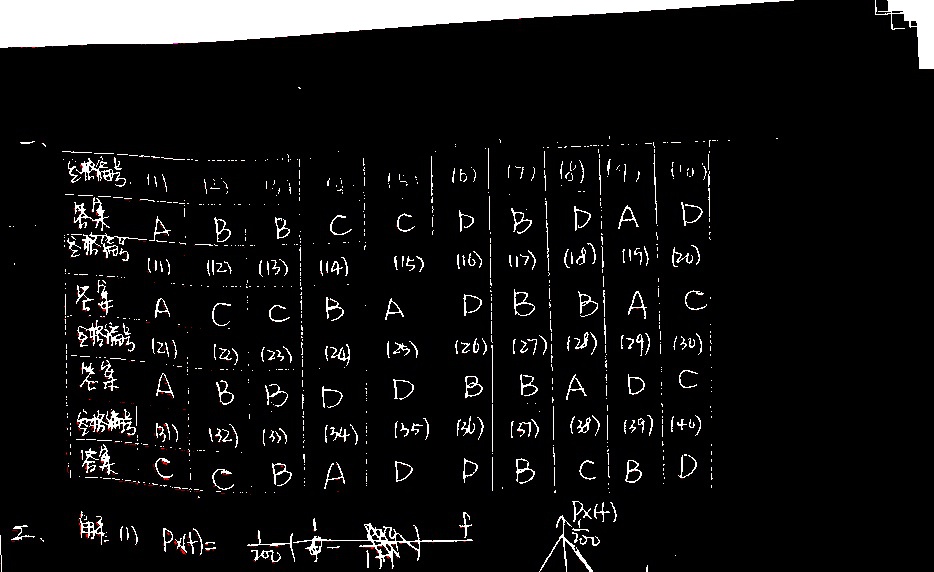 一、
空格编号 (1) (2) (3) (4) (5) (6) (7) (8) (9) (10)
答案 A B B C C D B D A D
空格编号 (11) (12) (13) (14) (15) (16) (17) (18) (19) (20)
答案 A C C B A D B B A C
空格编号 (21) (22) (23) (24) (25) (26) (27) (28) (29) (30)
答案 A B B D D B B A D C
空格编号 (31) (32) (33) (34) (35) (36) (37) (38) (39) (40)
答案 C C B A D D B C B D
二、 解: (1) Px(f)= 1/200
Px(f)
1/200